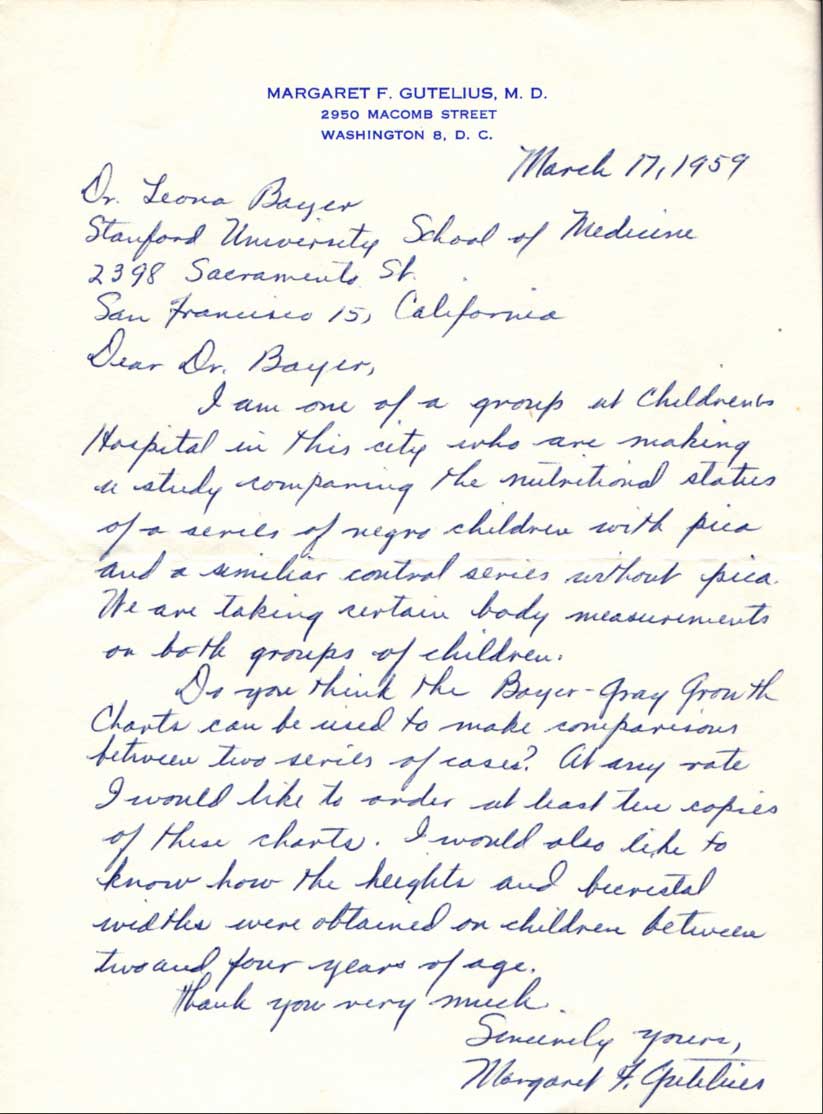 MARGARET F. GUTELIUS, M. D.
2950 MACOMB STREET
WASHINGTON 8, D. C.
March 17, 1959
Dr. Leona Bayer
Stanford University School of Medicine
2398 Sacramento St.
San Francisco 15, California
Dear Dr. Bayer,
I am one of a group at Children's
Hospital in this city who are making
a study comparing the nutritional status
of a series of negro children with pica
and a similiar control series without pica.
We are taking certain body measurements
on both groups of children.
Do you think the Bayer-Gray Growth
Charts can be used to make comparisons
between two series of cases? At any rate
I would like to order at least ten copies
of these charts. I would also like to
know how the heights and bicristal
widths were obtained on children between
two and four years of age.
Thank you very much.
Sincerely yours,
Margaret F. Gutelius